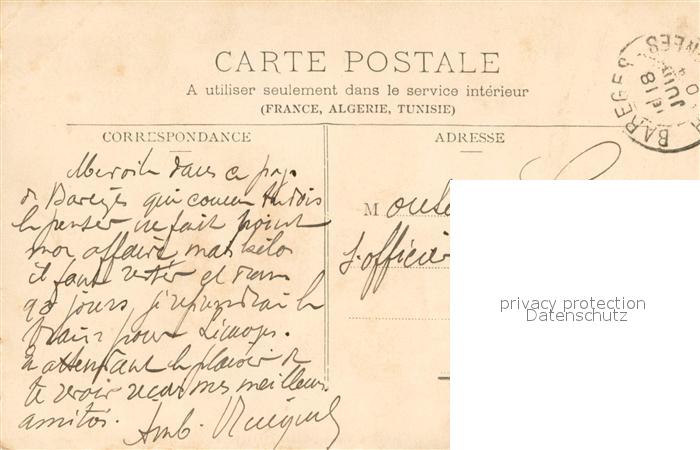 CARTE POSTALE
A utiliser seulement dans le service intérieur
(FRANCE, ALGERIE, TUNISIE)
CORRESPONDANCE
Me voilà dans ce pays
de Barèges qui comme tu dois
le penser ne fait point
mon affaire, mais hélas
il faut rester et dans
jours, je reprendrai le
train pour Limoges.
En attendant le plaisir de
te revoir reçois mes meilleures
amitiés.
ADRESSE
M
officier
BAREGES
18
JUIL
privacy protection
Datenschutz